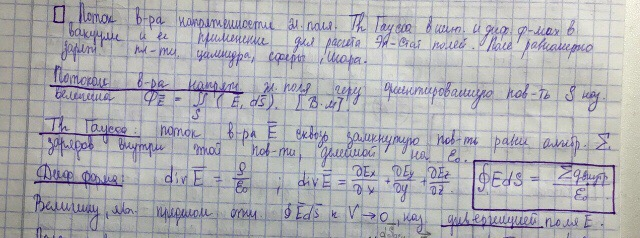 Поток в-ра напряженности эл. поля. Th Гаусса в инт. и диф. ф-мах в
вакууме и ее применение для расчета Эл-Стат полей. Поле равномерно
зарят пл-ти, цилиндра, сферы, шара.
Потоком в-ра напряж эл. поля через ориентированную пов-ть S наз.
величина Ф_Ē = ∬_S (Ē, dS̄). [В·м].
Th Гаусса: поток в-ра Ē сквозь замкнутую пов-ть равен алгебр. Σ
зарядов внутри этой пов-ти, деленной на ε₀.
Диф форма: div Ē = ρ/ε₀ ; div Ē = ∂Ex/∂x + ∂Ey/∂y + ∂Ez/∂z. ∮EdS = Σq внутр/ε₀
Величину, явл. пределом отн. ∮ĒdS̄ к V→0, наз дивергенцией поля E.